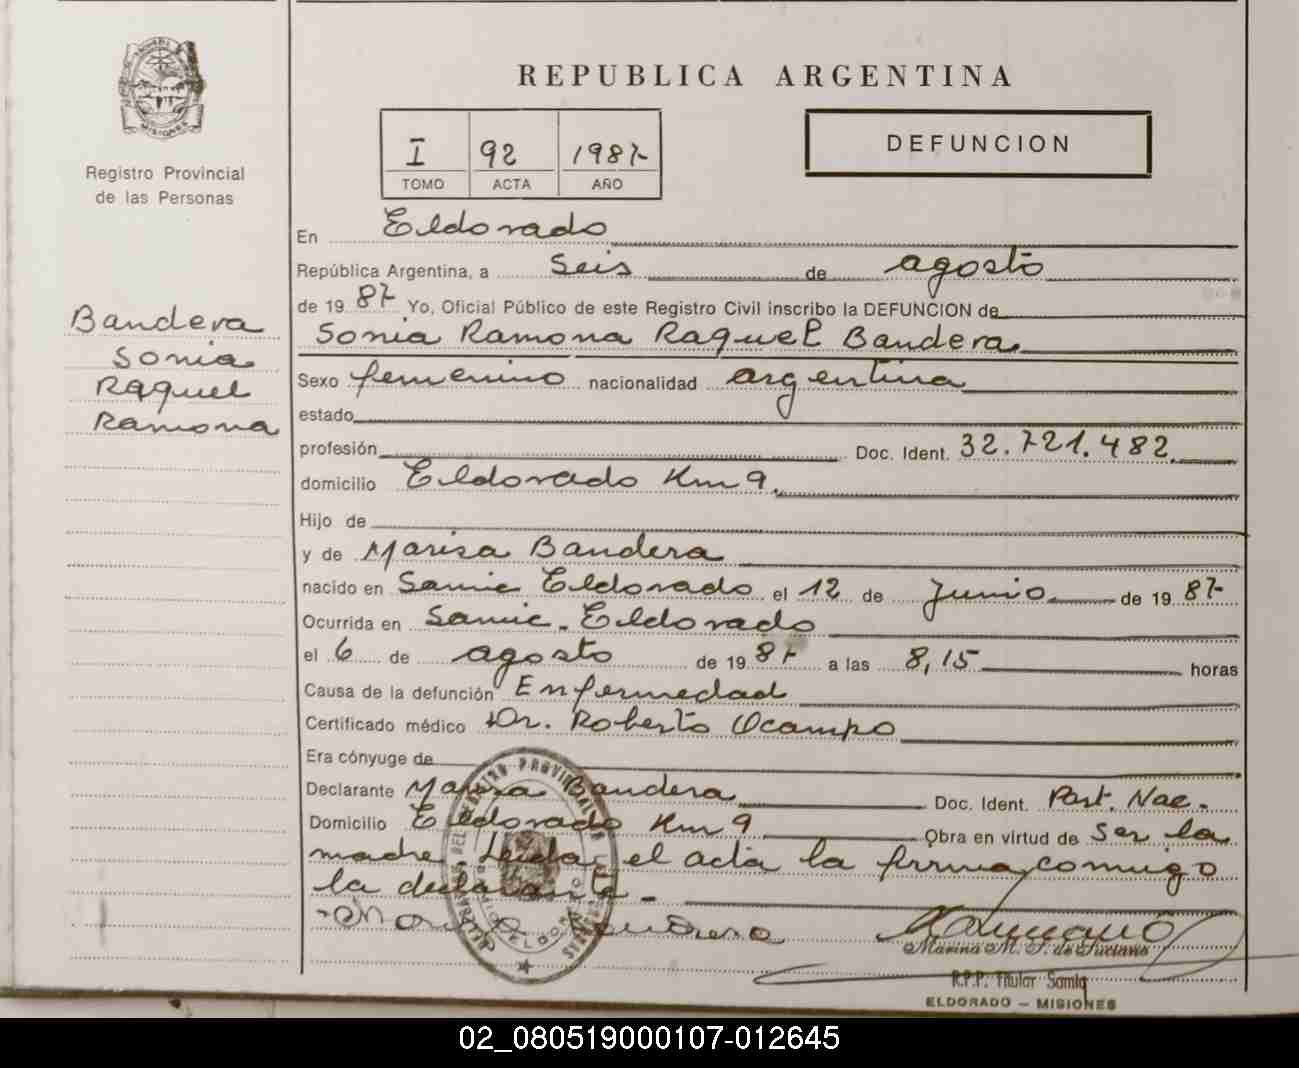 MISIONES
Registro Provincial
de las Personas
REPUBLICA ARGENTINA
I 92 1987
TOMO ACTA AÑO
DEFUNCION
En Eldorado
República Argentina, a seis de agosto
de 1987 Yo, Oficial Público de este Registro Civil inscribo la DEFUNCION de
Sonia Ramona Raquel Bandera
Bandera
Sonia
Raquel
Ramona
Sexo femenino nacionalidad argentina
estado
profesión Doc. Ident. 32.721.482.
domicilio Eldorado Km 9.
Hijo de
y de Marisa Bandera
nacido en Samic Eldorado el 12 de Junio de 1987
Ocurrida en Samic. Eldorado
el 6 de agosto de 1987 a las 8,15 horas
Causa de la defunción Enfermedad
Certificado médico Dr. Roberto Ocampo
Era cónyuge de
Declarante Marisa Bandera Doc. Ident. Part. Nac.
Domicilio Eldorado Km 9 Obra en virtud de ser la
madre. Leida el acta la firma comigo
la declarante.
Bandera
Marina M. de Luciano
R.P.P. Titular Samic
ELDORADO - MISIONES
02_080519000107-012645